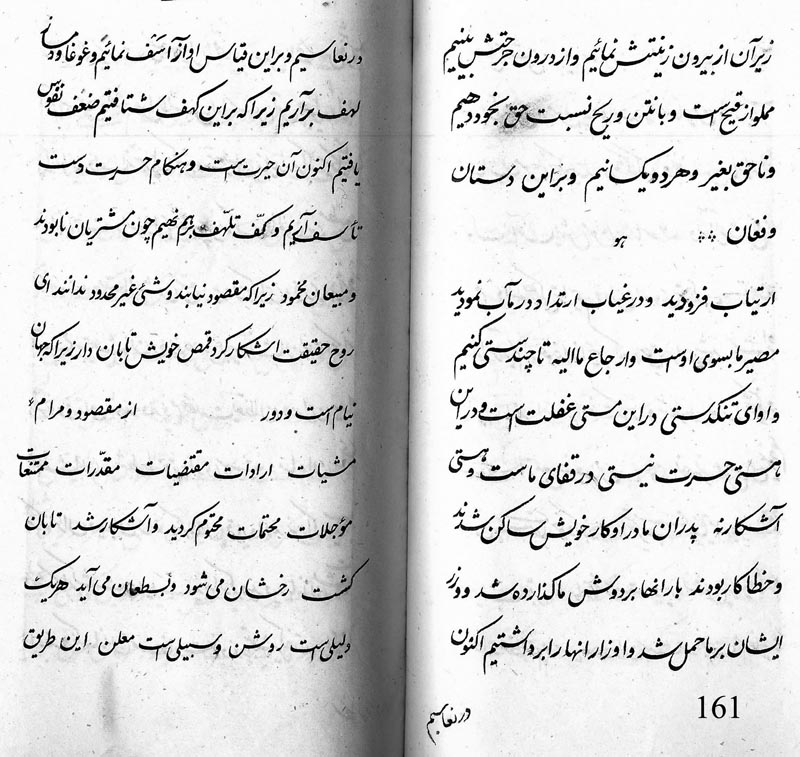 زیر آن از بیرون زینتش نمائیم و از درون جرحتش بینیم
مملو از قیح است و با نتن و ریح نسبت حق بخود دهیم
و ناحق بغیر و هر دو یکسانیم و بر این دستان
و فغان هو
ارتیاب فزودید و در غیاب ارتداد در مآب نمودید
مصیر ما بسوی اوست و ارجاع ما الیه تا چند سستی کنیم
و اوای تنکدستی در این مستی غفلت است و در این
هستی حسرت نیستی در قفای ماست و هستی
آشکار نه پدران ما در اوکار خویش ساکن شدند
و خطاکار بودند بار انها بر دوش ما کذارده شد و وزر
ایشان بر ما حمل شد و اوزار انها را برداشتیم اکنون
در نعاسیم
161
در نعاسیم و بر این قیاس اواز آسف نمائیم و غوغا و
لهف بر آریم زیرا که بر این کهف شتافتیم ضعف نفوس
یافتیم اکنون آن حیرت است و هنکام حسرت دست
تأسف آریم و کف تلهف بر هم نهیم چون مشتریان نابودند
و مبیعان مخمود زیرا که مقصود نیابند و شئ غیر محدود ندانند ای
روح حقیقت اشکار کرد قمص خویش تابان دار زیرا که جهان
نیام است و دور از مقصود و مرام
مشیات ارادات مقتضیات مقدّرات ممتنعات
مؤجلات محتمات محتوم کردید و آشکار شد تابان
کشت رخشان می‌شود و بسطعان می‌آید هر یک
دلیلی است روشن و سبیلی است معلن این طریق